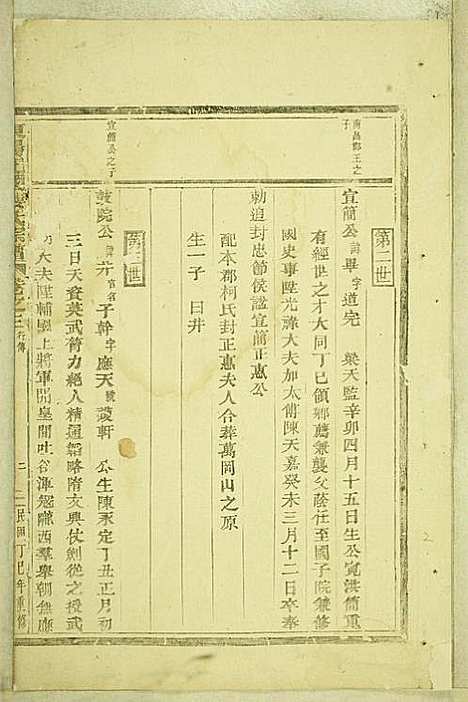 南昌郡王之
子
第二世
宣簡公諱畢字道完 梁天監辛卯四月十五日生公寬洪簡重
有經世之才大同丁巳領鄉薦兼襲父蔭任至國子院兼修
國史事陞光祿大夫加太傅陳天嘉癸未三月十二日卒奉
勅追封忠節侯諡宣簡正惠公
配本郡柯氏封正惠夫人合葬萬岡山之原
生一子曰井
宣簡公之子
第三世
院公諱井官名子幹字應天號菱軒 公生陳永定丁丑正月初
三日天資英武膂力絕人精通韜略隋文興仗劍從之授武
大夫陞輔國上將軍開皇間吐谷渾寇隴西羣舉朝無應
卷之三 行傳
二
民國丁巳年重修